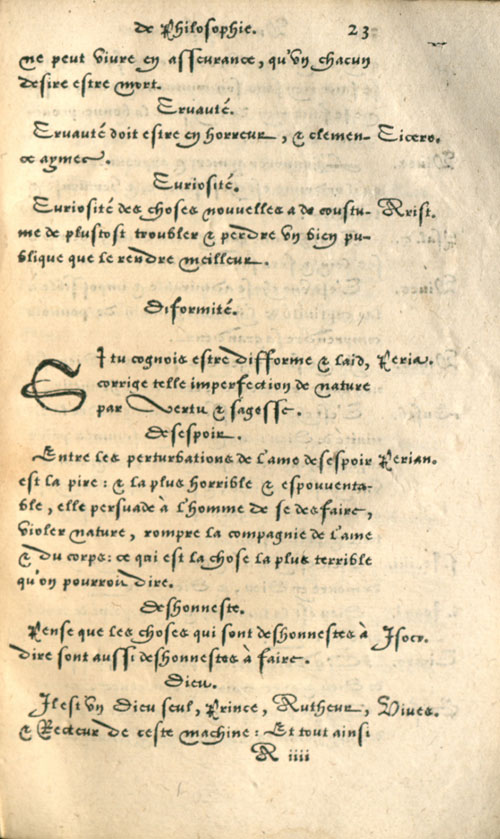 de Philosophie. 23
ne peut vivre en asseurance, qu'vn chacun
desire estre mort.
Cruauté.
Cruauté doit estre en horreur, & clemen- Cicero.
ce aymee.
Curiosité.
Curiosité des choses nouvelles a de coustu- Arist.
me de plustost troubler & perdre vn bien pu-
blique que le rendre meilleur.
Diformité.
SI tu cognois estre difforme & laid, Peria.
corrige telle imperfection de nature
par vertu & sagesse.
Desespoir.
Entre les perturbations de l'ame desespoir Perian.
est la pire: & la plus horrible & espouventa-
ble, elle persuade à l'homme de se desfaire,
violer nature, rompre la compagnie de l'ame
& du corps: ce qui est la chose la plus terrible
qu'on pourroit dire.
Deshonneste.
Pense que les choses qui sont deshonnestes à Isocr.
dire sont aussi deshonnestes à faire.
Dieu.
Il est vn Dieu seul, Prince, Autheur, Vives.
& Recteur de ceste machine: Et tout ainsi
A iiii